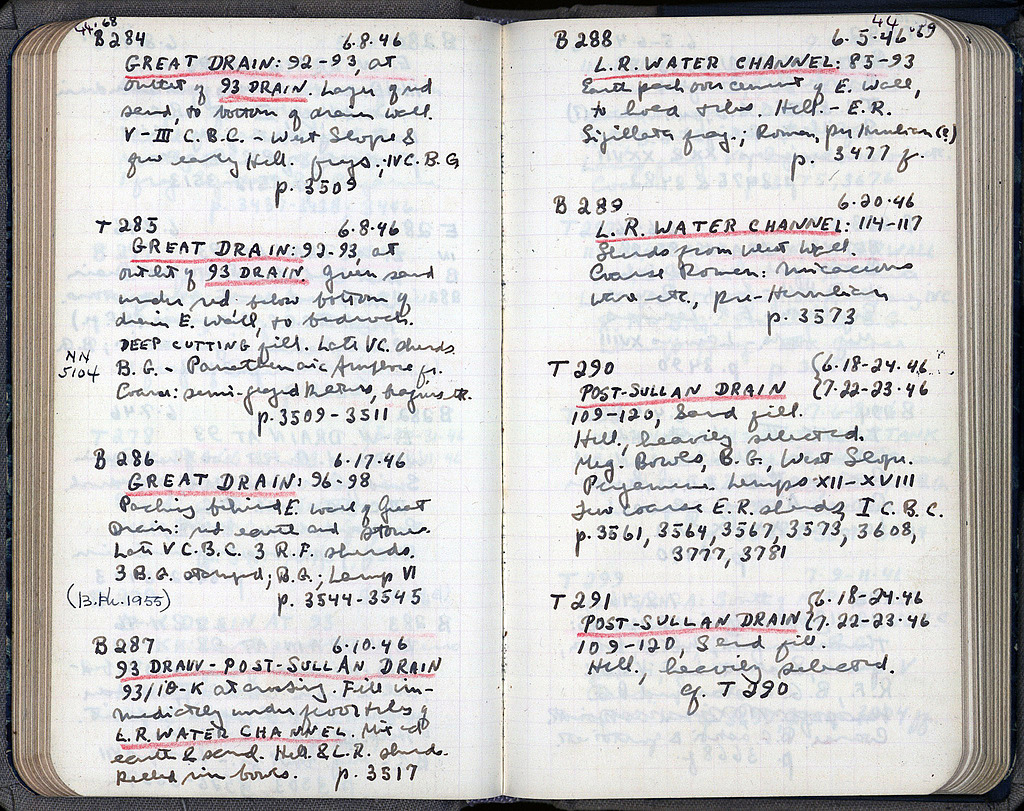 44.68
B 284 6.8.46
GREAT DRAIN: 92-93, at
outlet of 93 DRAIN. Layer of red
sand, to bottom of drain wall.
V-III C.B.C. - West Slope &
few early Hell. frags.; IV C. B.G
p. 3509
T 285 6.8.46
GREAT DRAIN: 92-93, at
outlet of 93 DRAIN. Green sand
under red. below bottom of
drain E. wall, to bedrock.
DEEP CUTTING fill. Late V C. sherds.
NN
5104
B.G. - Panathenaic Amphora fr.
Coarse: semi-glazed kraters,
p. 3509-3511
B 286 6.17.46
GREAT DRAIN: 96-98
Packing behind E. wall of Great
Drain: red earth and stones.
Late V C.B.C. 3 R.F. sherds.
3 B.G. stamped; B.G.; Lamp VI
(B.H. 1955) p. 3544-3545
B 287 6.10.46
93 DRAIN - POST-SULLAN DRAIN
93/10-K at crossing. Fill im-
mediately under floor tiles of
L.R. WATER CHANNEL. Mixed
earth & sand. Hell. & L.R. sherds.
in bowls. p. 3517
44.69
B 288 6.5.46
L.R. WATER CHANNEL: 85-93
Earth pack over cement of E. Wall,
to tiles. Hell. - E.R.
Sigillata frag.; Roman, pre Herulian (?)
p. 3477 f.
B 289 6.20.46
L.R. WATER CHANNEL: 114-117
Sherds from west wall
Coarse Roman: micaceous
ware etc., pre-Herulian
p. 3573
T 290 {6.18-24.46
POST-SULLAN DRAIN {7.22-23.46
109-120, Sand fill.
Hell., heavily selected.
Meg. Bowls, B.G., West Slope.
Pergamene. Lamps XII-XVIII
Few coarse E.R. sherds, I C. B.C.
p. 3561, 3564, 3567, 3573, 3608,
3777, 3781
T 291 {6.18-24.46
POST-SULLAN DRAIN {7.22-23.46
109-120, Sand fill.
Hell., heavily selected.
cf. T 290